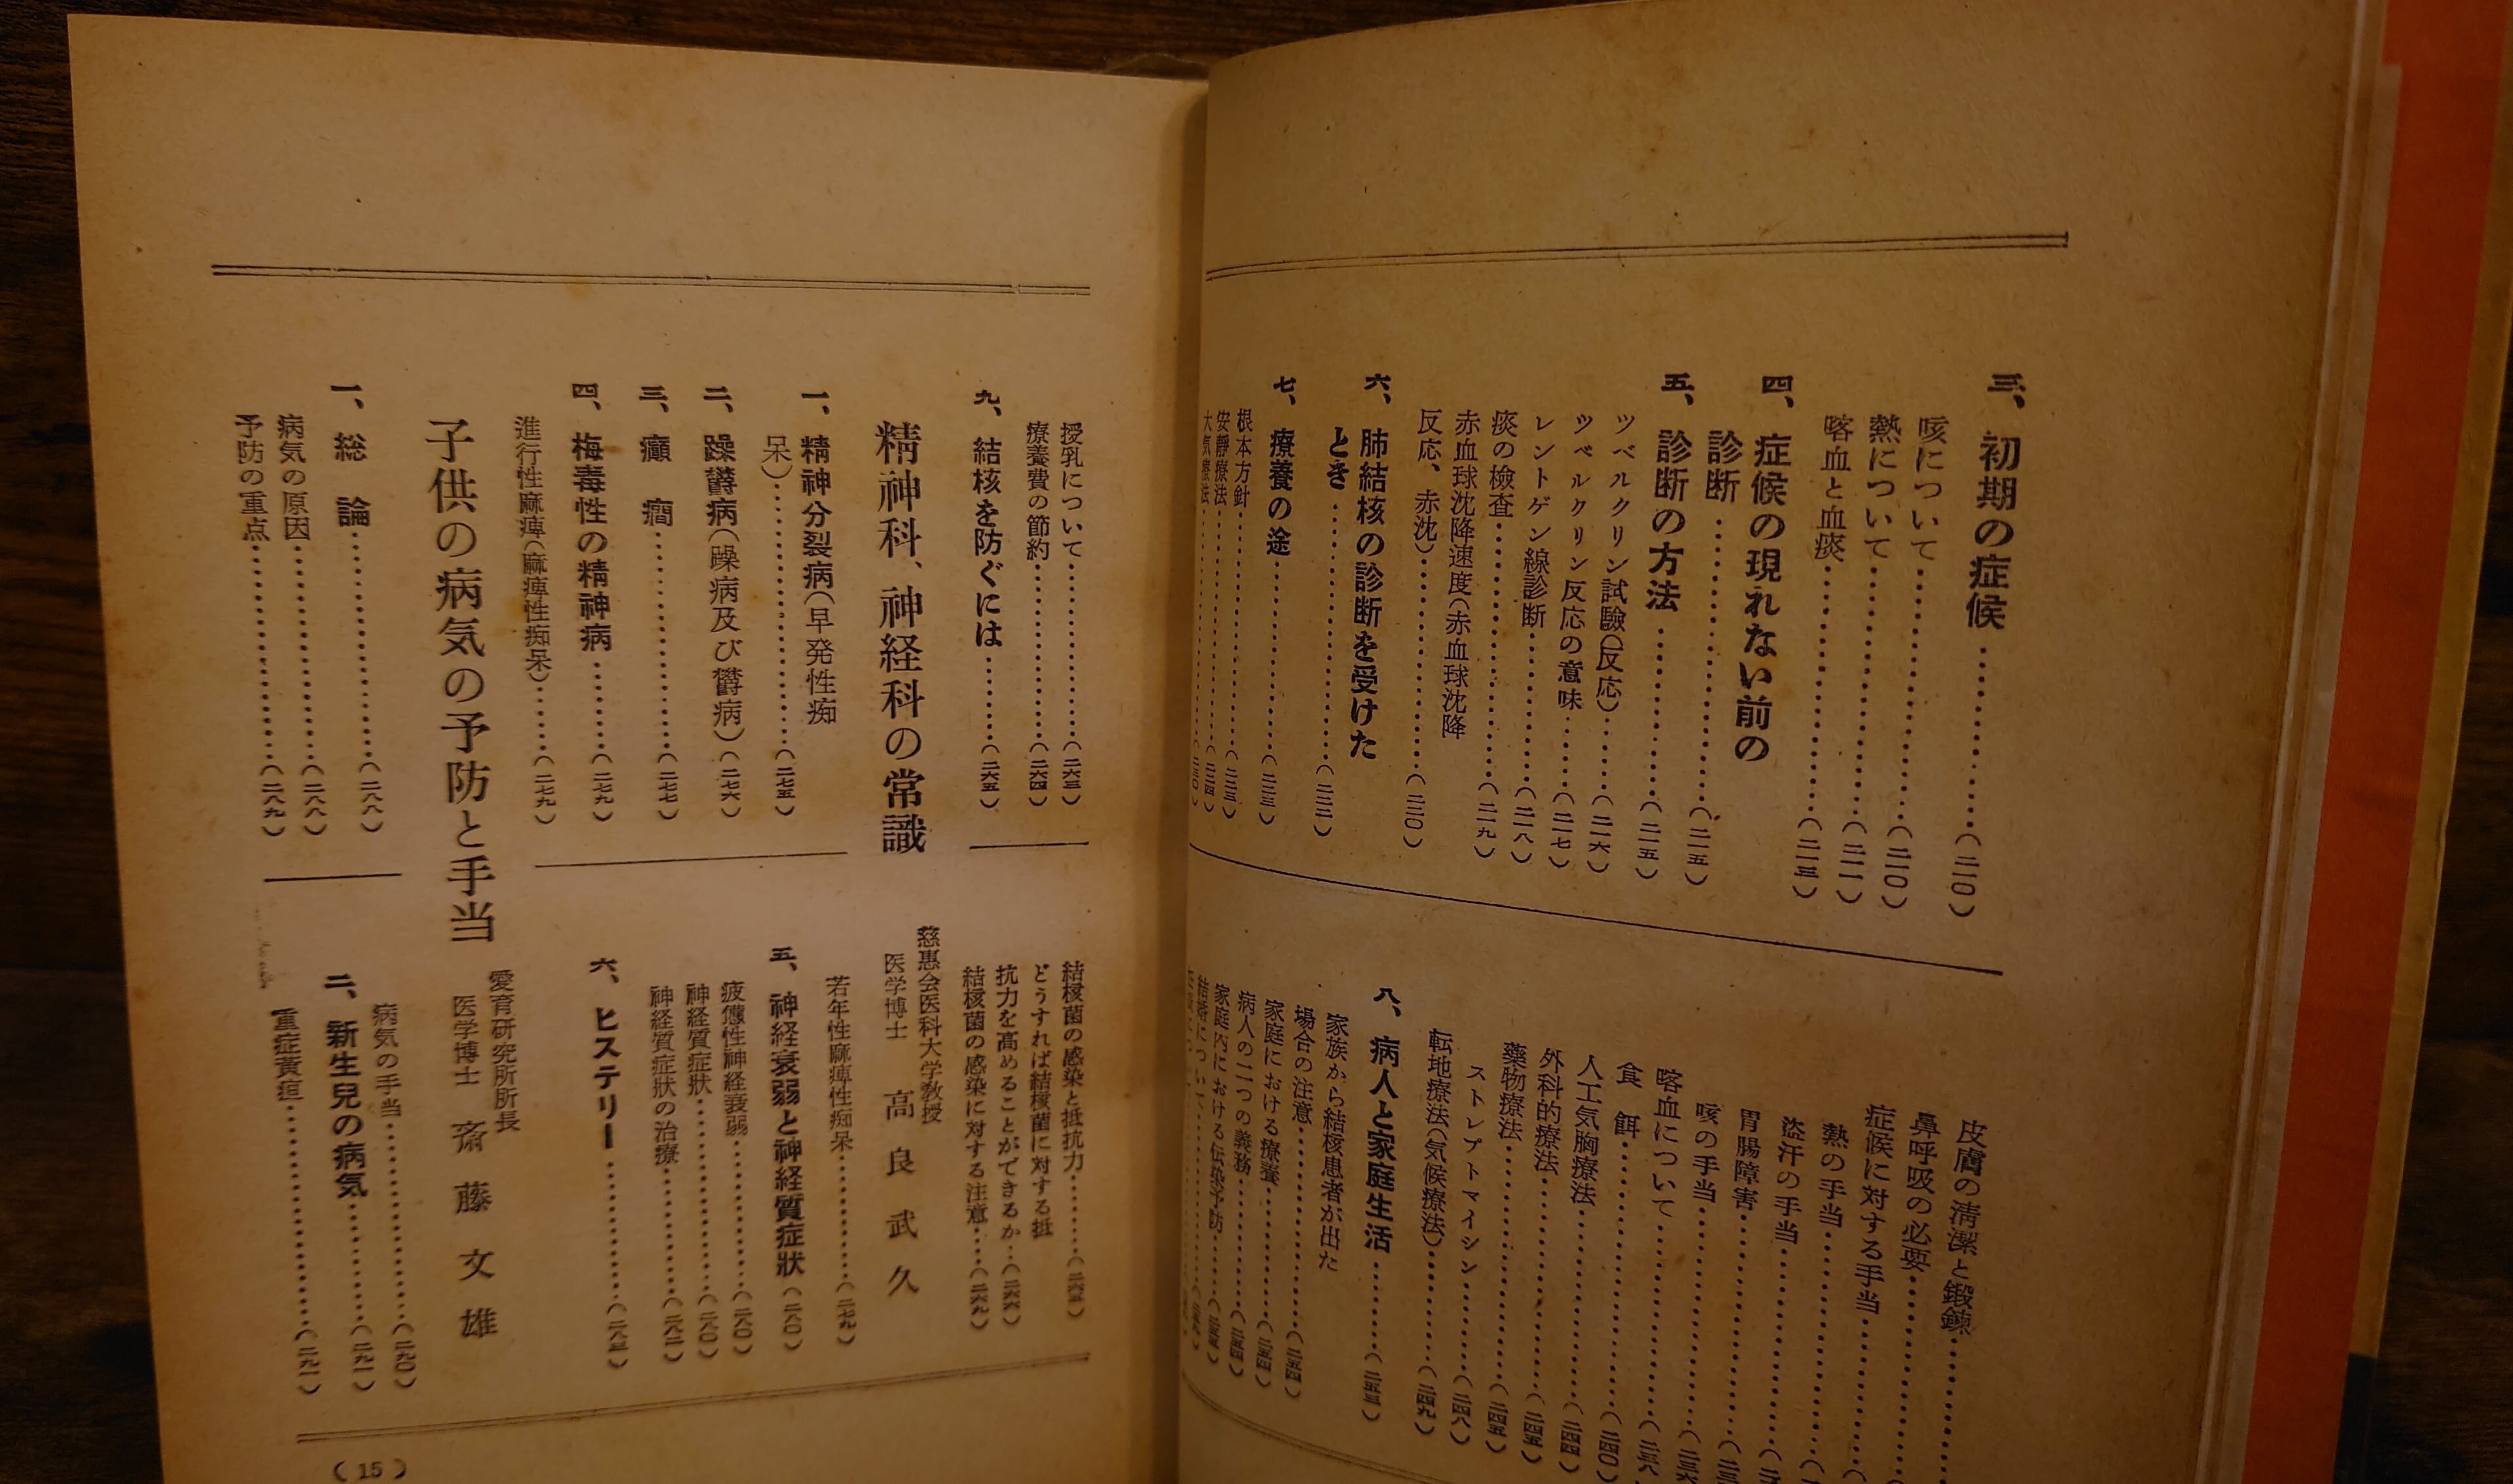 三、初期の症候…………(二一〇)
咳について…………(二一〇)
熱について…………(二一一)
喀血と血痰…………(二一三)
四、症候の現れない前の
診断…………(二一五)
五、診断の方法…………(二一五)
ツベルクリン試驗(反応)……(二一六)
ツベルクリン反応の意味……(二一七)
レントゲン線診断…………(二一八)
痰の檢査…………(二一九)
赤血球沈降速度(赤血球沈降
反応、赤沈)…………(二二〇)
六、肺結核の診断を受けた
とき…………(二二二)
七、療養の途…………(二二三)
根本方針…………(二二三)
安靜療法…………(二二四)
大気療法…………(二三〇)
皮膚の淸潔と鍛錬…………
鼻呼吸の必要…………
症候に対する手当…………
熱の手当…………
盜汗の手当…………
胃腸障害…………
咳の手当…………
喀血について…………
食餌…………(二四〇)
人工気胸療法…………(二四四)
外科的療法…………(二四五)
藥物療法…………(二四五)
ストレプトマイシン……(二四八)
転地療法(気候療法)……(二四九)
八、病人と家庭生活……(二五三)
家族から結核患者が出た
場合の注意…………(二五四)
家庭における療養…………(二五四)
病人の二つの義務…………(二五四)
家庭内における伝染予防……
授乳について…………(二六三)
療養費の節約…………(二六四)
九、結核を防ぐには……(二六五)
結核菌の感染と抵抗力……(二六五)
どうすれば結核菌に対する抵
抗力を高めることができるか…(二六六)
結核菌の感染に対する注意…(二六九)
精神科、神経科の常識
慈恵会医科大学教授
医学博士 高良武久
一、精神分裂病(早発性痴
呆)…………(二七五)
二、躁鬱病(躁病及び鬱病)(二七六)
三、癲癇…………(二七七)
四、梅毒性の精神病……(二七九)
進行性麻痺(麻痺性痴呆)……(二七九)
若年性麻痺性痴呆…………(二七九)
五、神経衰弱と神経質症狀(二八〇)
疲憊性神経衰弱…………(二八〇)
神経質症狀…………(二八〇)
神経質症狀の治療…………(二八二)
六、ヒステリー…………(二八三)
子供の病気の予防と手当
愛育研究所所長
医学博士 斎藤文雄
一、総論…………(二八八)
病気の原因…………(二八八)
予防の重点…………(二八九)
病気の手当…………(二九〇)
二、新生兒の病気…………(二九一)
重症黃疸…………(二九一)
(15)